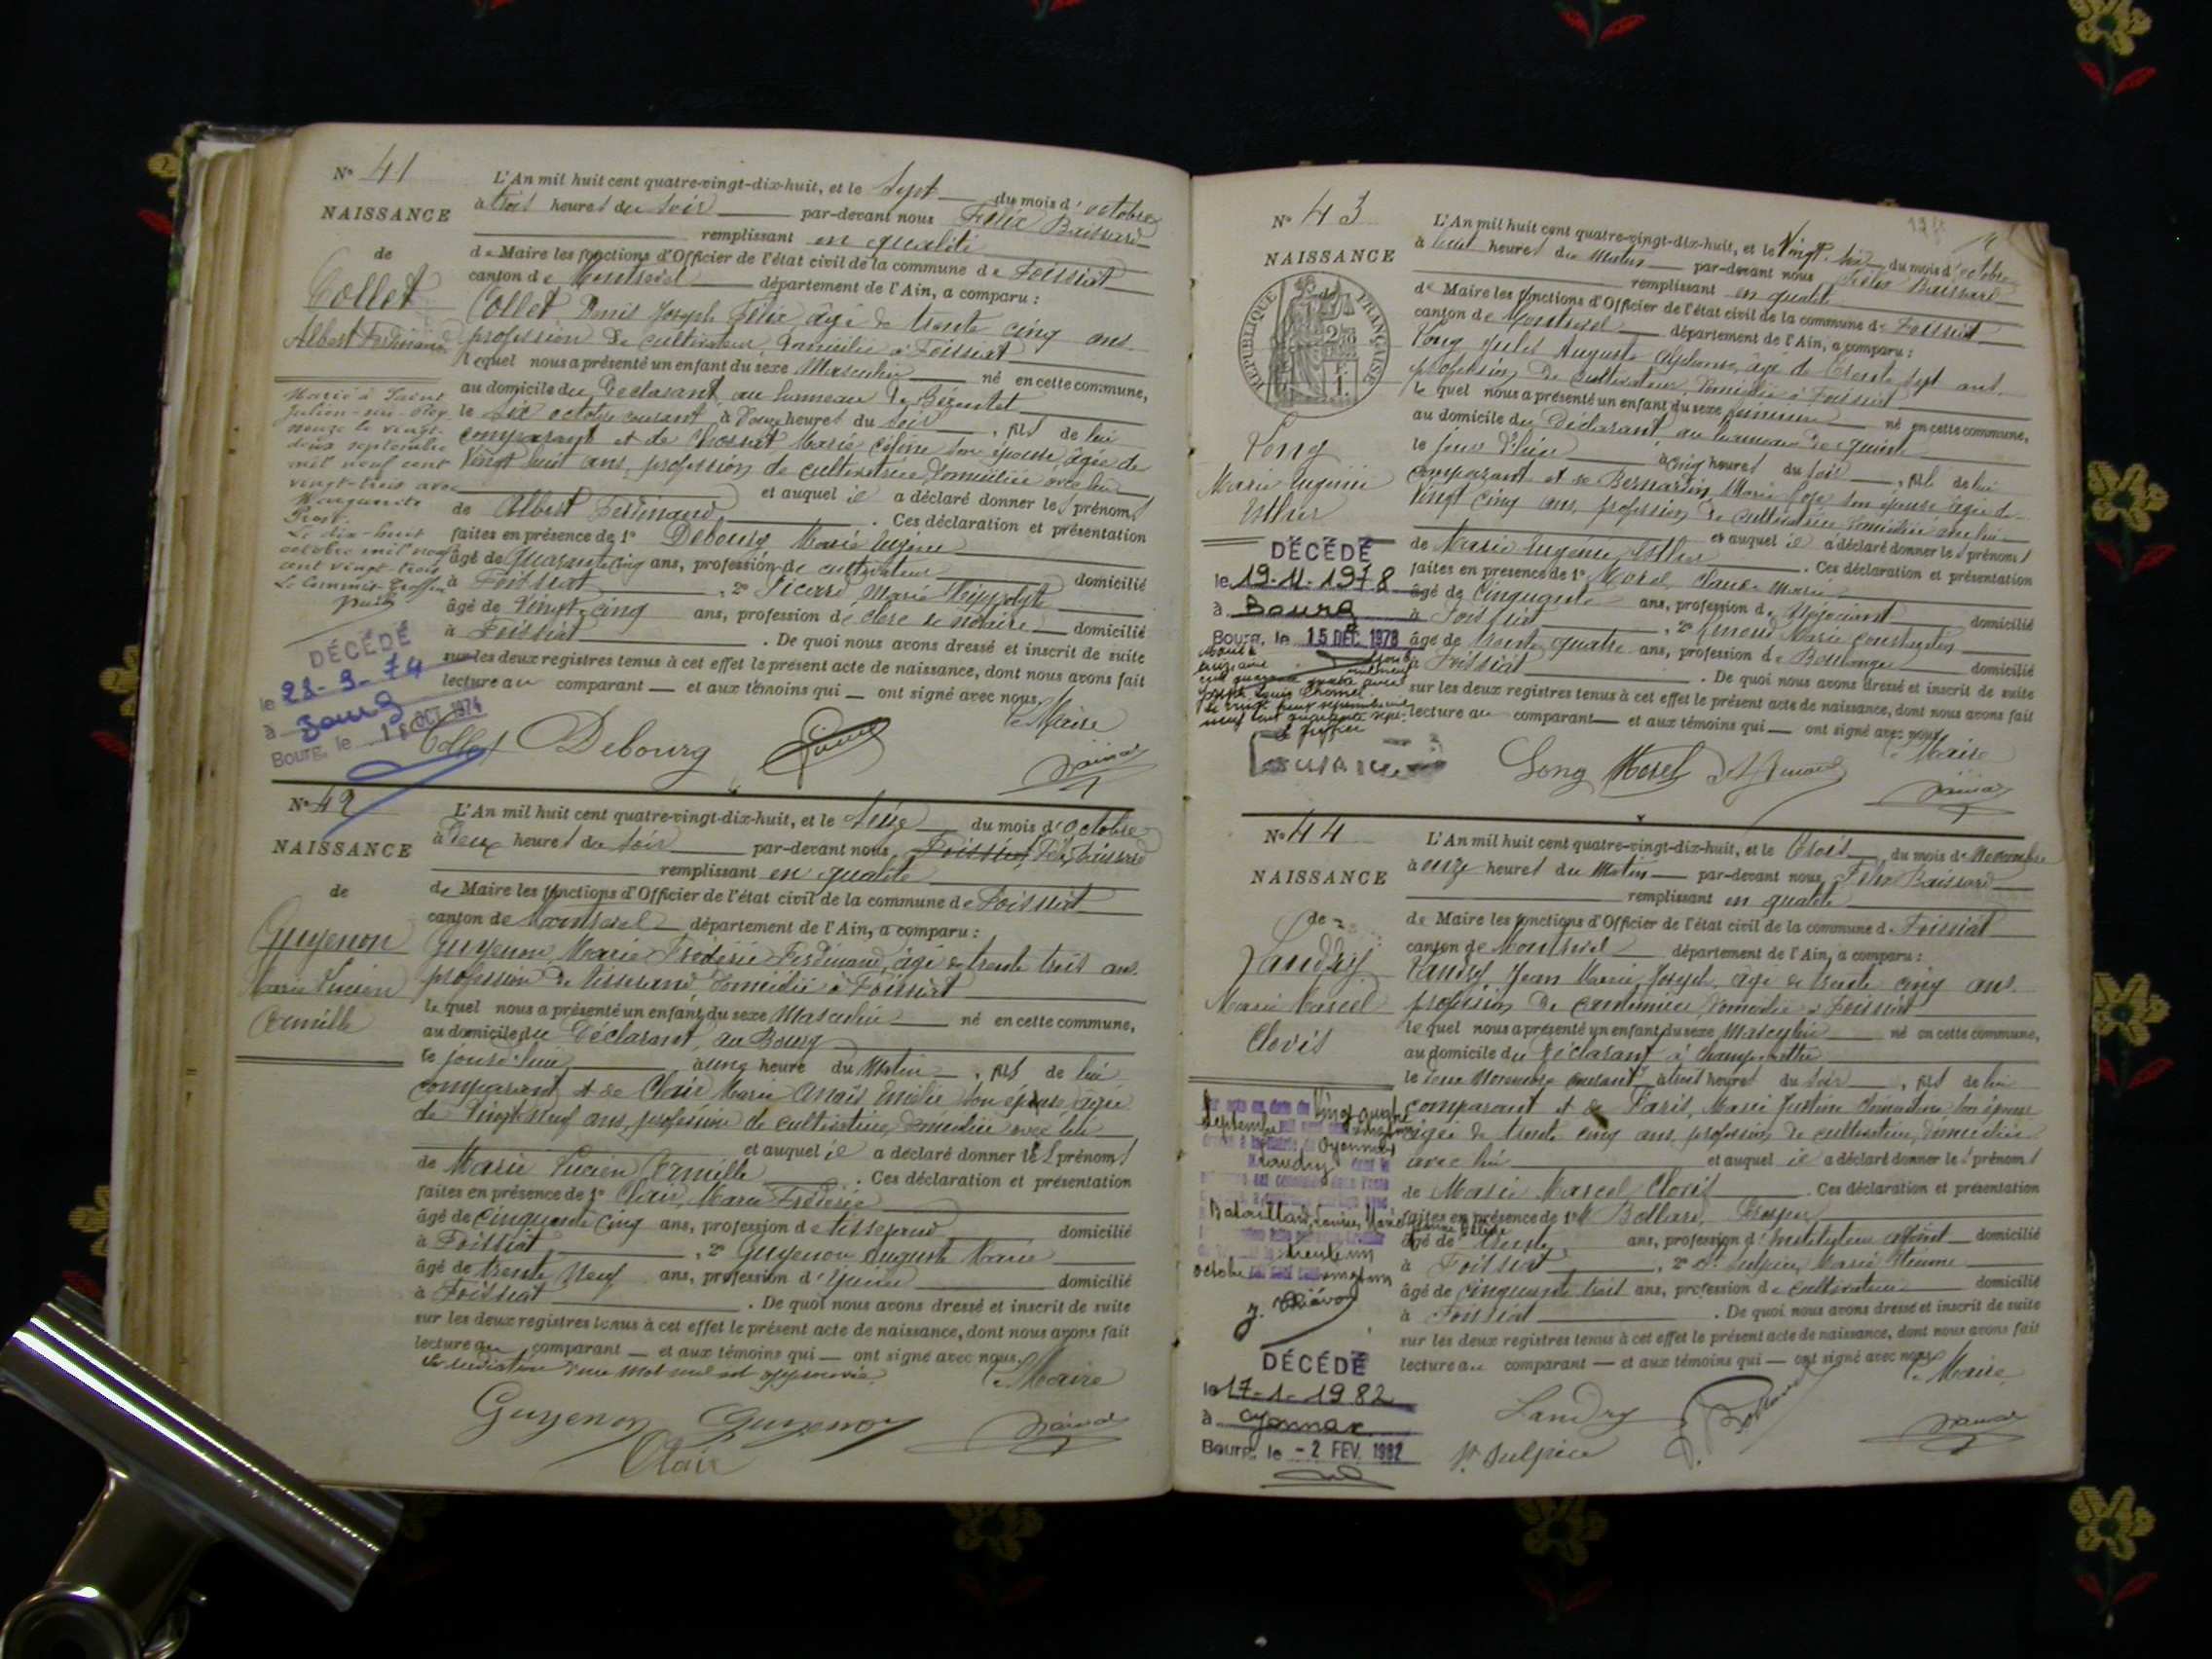 N° 41
NAISSANCE
de
Collet
Albert Ferdinand
L'An mil huit cent quatre-vingt-dix-huit, et le Sept du mois d'octobre
à trois heures du soir par-devant nous Félix Baissard
remplissant en qualité
de Maire les fonctions d'Officier de l'état civil de la commune de Foissiat
canton de Montrevel département de l'Ain, a comparu :
Collet Denis Joseph Félix, âgé de trente cinq ans
profession de cultivateur, domicilié à Foissiat
lequel nous a présenté un enfant du sexe Masculin né en cette commune,
au domicile du Déclarant, au hameau de
le six octobre courant à heures du soir, fils de lui
comparant et de Marie son épouse, âgée de
Vingt huit ans, profession de cultivatrice, domiciliée avec lui
et auquel il a déclaré donner les prénoms
de Albert Ferdinand. Ces déclaration et présentation
faites en présence de 1° Debourg Marie Eugène
âgé de quarante cinq ans, profession de cultivateur domicilié
à Foissiat, 2° Marie Hippolyte
âgé de Vingt-cinq ans, profession de clerc de notaire domicilié
à Foissiat. De quoi nous avons dressé et inscrit de suite
sur les deux registres tenus à cet effet le présent acte de naissance, dont nous avons fait
lecture au comparant et aux témoins qui ont signé avec nous.
Le Maire
Collet Debourg
Marié à Saint
Julien-sur-Rey-
ssouze le vingt-
deux septembre
mil neuf cent
vingt-trois avec
Marguerite
Prost.
Le dix-huit
octobre mil neuf
cent vingt trois
Le Commis-Greffier
DÉCÉDÉ
le 23-9-74
à Bourg
Bourg, le 1 OCT 1974
N° 42
NAISSANCE
de
Guyenon
Marie Lucien
Camille
L'An mil huit cent quatre-vingt-dix-huit, et le Seize du mois d'octobre
à deux heures du soir par-devant nous Foissiat, Félix Baissard
remplissant en qualité
de Maire les fonctions d'Officier de l'état civil de la commune de Foissiat
canton de Montrevel département de l'Ain, a comparu :
Guyenon, Marie Frédéric Ferdinand, âgé de trente trois ans
profession de tisserand domicilié à Foissiat
lequel nous a présenté un enfant du sexe Masculin né en cette commune,
au domicile du Déclarant, au Bourg
le jourd'hui à une heure du Matin, fils de lui
comparant et de Clair Marie Anaïs Emélie son épouse âgée
de Vingt-neuf ans, profession de cultivatrice, domiciliée avec lui
et auquel il a déclaré donner les prénoms
de Marie Lucien Camille. Ces déclaration et présentation
faites en présence de 1° Clair, Marie Frédéric
âgé de cinquante cinq ans, profession de tisserand domicilié
à Foissiat, 2° Guyenon Auguste Marie
âgé de trente neuf ans, profession d'épicier domicilié
à Foissiat. De quoi nous avons dressé et inscrit de suite
sur les deux registres tenus à cet effet le présent acte de naissance, dont nous avons fait
lecture au comparant et aux témoins qui ont signé avec nous.
La radiation d'un mot nul est approuvée
Le Maire
Guyenon Guyenon
Clair
N° 43
NAISSANCE
de
RÉPUBLIQUE FRANÇAISE
Long
Marie Eugénie
Esther
L'An mil huit cent quatre-vingt-dix-huit, et le Vingt-six du mois d'octobre
à huit heures du Matin par-devant nous Félix Baissard
remplissant en qualité
de Maire les fonctions d'Officier de l'état civil de la commune de Foissiat
canton de Montrevel département de l'Ain, a comparu :
Long Jules Auguste Alphonse, âgé de trente sept ans
profession de cultivateur, domicilié à Foissiat
le quel nous a présenté un enfant du sexe féminin né en cette commune,
au domicile du Déclarant, au hameau de
le jour d'hier à cinq heures du soir, fille de lui
comparant et de Bernardin, Marie Rose son épouse âgée de
Vingt cinq ans, profession de cultivatrice domiciliée avec lui
et auquel il a déclaré donner les prénoms
de Marie Eugénie Esther. Ces déclaration et présentation
faites en présence de 1° Morel Claude Marie
âgé de Cinquante ans, profession de Négociant domicilié
à Foissiat, 2° Marie Constantin
âgé de trente quatre ans, profession de Boulanger domicilié
à Foissiat. De quoi nous avons dressé et inscrit de suite
sur les deux registres tenus à cet effet le présent acte de naissance, dont nous avons fait
lecture au comparant et aux témoins qui ont signé avec nous.
Le Maire
Long Morel
DÉCÉDÉ
le 19-11-1978
à Bourg
Bourg, le 15 DEC. 1978
N° 44
NAISSANCE
de
Landry
Marie Marcel
Clovis
L'An mil huit cent quatre-vingt-dix-huit, et le trois du mois de Novembre
à onze heures du Matin par-devant nous Félix Baissard
remplissant en qualité
de Maire les fonctions d'Officier de l'état civil de la commune de Foissiat
canton de Montrevel département de l'Ain, a comparu :
Landry, Jean Marie Joseph, âgé de trente cinq ans
profession de cantonnier, domicilié à Foissiat
le quel nous a présenté un enfant du sexe Masculin né en cette commune,
au domicile du Déclarant, à
le deux Novembre courant à trois heures du soir, fils de lui
comparant et de Paris, Marie Justine Clémentine son épouse
âgée de trente cinq ans, profession de cultivatrice, domiciliée
avec lui et auquel il a déclaré donner les prénoms
de Marie Marcel Clovis. Ces déclaration et présentation
faites en présence de 1° Bollard, Prosper
âgé de trente ans, profession d'Instituteur adjoint domicilié
à Foissiat, 2° St Sulpice, Marie Etienne
âgé de cinquante trois ans, profession de cultivateur domicilié
à Foissiat. De quoi nous avons dressé et inscrit de suite
sur les deux registres tenus à cet effet le présent acte de naissance, dont nous avons fait
lecture au comparant et aux témoins qui ont signé avec nous.
Le Maire
Landry
St Sulpice
Bataillard, Louise, Marie
trente un
octobre
DÉCÉDÉ
le 17-1-1982
à Oyonnax
Bourg, le -2 FEV. 1982